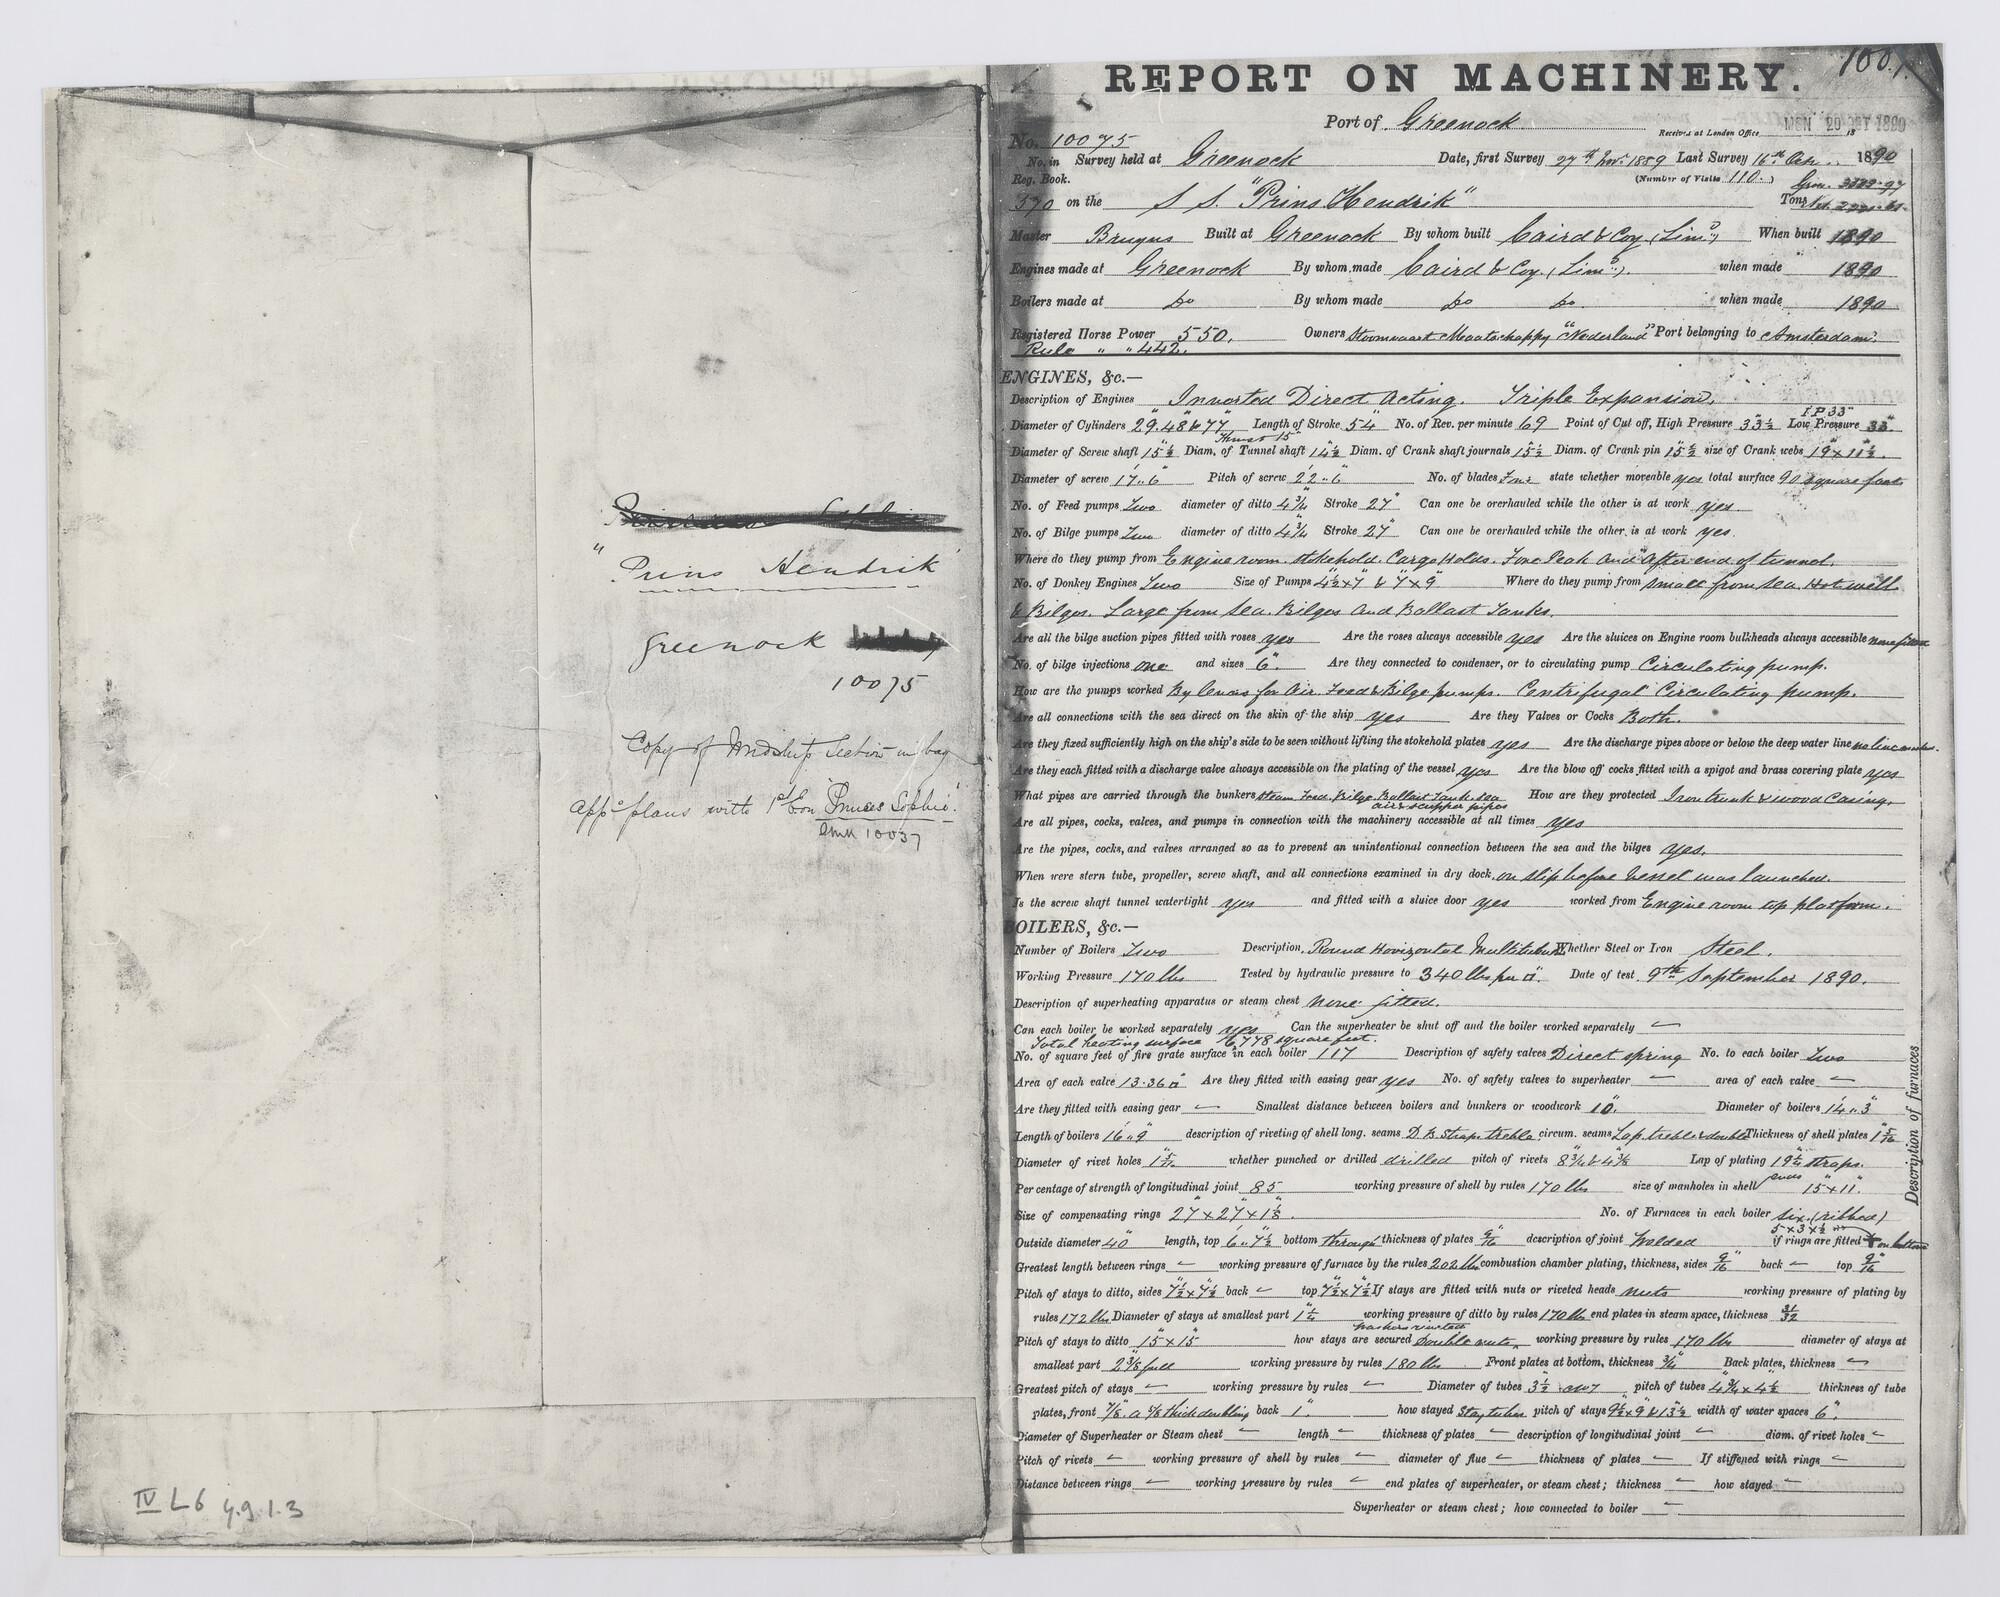 " Prins Hendrik "
Greenock
10075
Copy of Midship Section in bag
appd plans with 1st Ent Prinses Sophie.
Grnk 10037
IV L6 4.9.1.3
REPORT ON MACHINERY.
Port of Greenock Received at London Office MON 20 OCT 1890
No. 10075
No. in Survey held at Greenock Date, first Survey 27th Novr 1889 Last Survey 16th Octr 1890
Reg. Book. (Number of Visits 110.)
570 on the S S. "Prins Hendrik" Tons
Master Bruyns Built at Greenock By whom built Caird & Coy (Limd) When built 1890
Engines made at Greenock By whom made Caird & Coy (Limd). when made 1890
Boilers made at Do By whom made Do Do. when made 1890
Registered Horse Power 550. Owners Stoomvaart Maatschappy "Nederland" Port belonging to Amsterdam.
Rule " " 442.
ENGINES, &c.—
Description of Engines Inverted Direct Acting. Triple Expansion.
I.P 33"
Diameter of Cylinders 29" 48" & 77" Length of Stroke 54" No. of Rev. per minute 69 Point of Cut off, High Pressure 33½ Low Pressure 33"
Thrust 15"
Diameter of Screw shaft 15½ Diam. of Tunnel shaft 14½ Diam. of Crank shaft journals 15½ Diam. of Crank pin 15½ size of Crank webs 19" x 11½"
Diameter of screw 17'.. 6" Pitch of screw 22'.. 6" No. of blades Four state whether moveable yes total surface 90 square feet
No. of Feed pumps Two diameter of ditto 4¾" Stroke 27" Can one be overhauled while the other is at work yes.
No. of Bilge pumps Two diameter of ditto 4¾" Stroke 27" Can one be overhauled while the other is at work yes.
Where do they pump from Engine room. Stokehold. Cargo Holds. Fore Peak and After end of tunnel.
No. of Donkey Engines Two Size of Pumps 4½" x 7" & 7" x 9" Where do they pump from small from sea. Hotwell
& Bilges. Large from Sea. Bilges and Ballast Tanks.
Are all the bilge suction pipes fitted with roses yes Are the roses always accessible yes Are the sluices on Engine room bulkheads always accessible none fitted
No. of bilge injections one and sizes 6". Are they connected to condenser, or to circulating pump Circulating pump.
How are the pumps worked By levers for Air. Feed & Bilge pumps. Centrifugal Circulating pump.
Are all connections with the sea direct on the skin of the ship yes Are they Valves or Cocks Both.
Are they fixed sufficiently high on the ship's side to be seen without lifting the stokehold plates yes Are the discharge pipes above or below the deep water line no line
Are they each fitted with a discharge valve always accessible on the plating of the vessel yes Are the blow off cocks fitted with a spigot and brass covering plate yes
What pipes are carried through the bunkers steam. Feed. Bilge. Ballast Tank. Sea How are they protected Iron trunk & wood Casing.
air & scupper pipes
Are all pipes, cocks, valves, and pumps in connection with the machinery accessible at all times yes
Are the pipes, cocks, and valves arranged so as to prevent an unintentional connection between the sea and the bilges yes.
When were stern tube, propeller, screw shaft, and all connections examined in dry dock, on slip before vessel was launched.
Is the screw shaft tunnel watertight yes and fitted with a sluice door yes worked from Engine room top platform.
BOILERS, &c.—
Number of Boilers Two Description, Round Horizontal Multitubular Whether Steel or Iron Steel.
Working Pressure 170 lbs Tested by hydraulic pressure to 340 lbs per □". Date of test. 9th September 1890.
Description of superheating apparatus or steam chest none fitted.
Can each boiler be worked separately yes Can the superheater be shut off and the boiler worked separately —
Total heating surface 6778 square feet.
No. of square feet of fire grate surface in each boiler 117 Description of safety valves Direct spring No. to each boiler Two
Area of each valve 13.36 □" Are they fitted with easing gear yes No. of safety valves to superheater — area of each valve —
Are they fitted with easing gear — Smallest distance between boilers and bunkers or woodwork 10". Diameter of boilers 14'.. 3"
Length of boilers 16'.. 9" description of riveting of shell long. seams D B Straps treble circum. seams Lap treble & double Thickness of shell plates 1 5/16"
Diameter of rivet holes 1 5/16" whether punched or drilled drilled pitch of rivets 8¾ & 4⅜ Lap of plating 19¼" straps.
Per centage of strength of longitudinal joint 85 working pressure of shell by rules 170 lbs size of manholes in shell ends 15" x 11".
Size of compensating rings 27" x 27" x 1⅛". No. of Furnaces in each boiler six. (ribbed)
Outside diameter 40" length, top 6'.. 7½" bottom through thickness of plates 9/16" description of joint Welded if rings are fitted on bottom
Greatest length between rings — working pressure of furnace by the rules 202 lbs combustion chamber plating, thickness, sides 9/16" back — top 9/16"
Pitch of stays to ditto, sides 7½" x 7½" back — top 7½" x 7½" If stays are fitted with nuts or riveted heads nuts working pressure of plating by
rules 172 lbs Diameter of stays at smallest part 1¼" working pressure of ditto by rules 170 lbs end plates in steam space, thickness 31/32
Pitch of stays to ditto 15" x 15" how stays are secured Double nuts, washers riveted working pressure by rules 170 lbs diameter of stays at
smallest part 2⅜" full working pressure by rules 180 lbs Front plates at bottom, thickness ¾" Back plates, thickness —
Greatest pitch of stays — working pressure by rules — Diameter of tubes 3½" pitch of tubes 4¾" x 4½" thickness of tube
plates, front ⅞". a ⅝ thick doubling back 1". how stayed Stay tubes pitch of stays 9½" x 9" & 13½" width of water spaces 6".
Diameter of Superheater or Steam chest — length — thickness of plates — description of longitudinal joint — diam. of rivet holes —
Pitch of rivets — working pressure of shell by rules — diameter of flue — thickness of plates — If stiffened with rings —
Distance between rings — working pressure by rules — end plates of superheater, or steam chest; thickness — how stayed —
Superheater or steam chest; how connected to boiler —
Description of furnaces